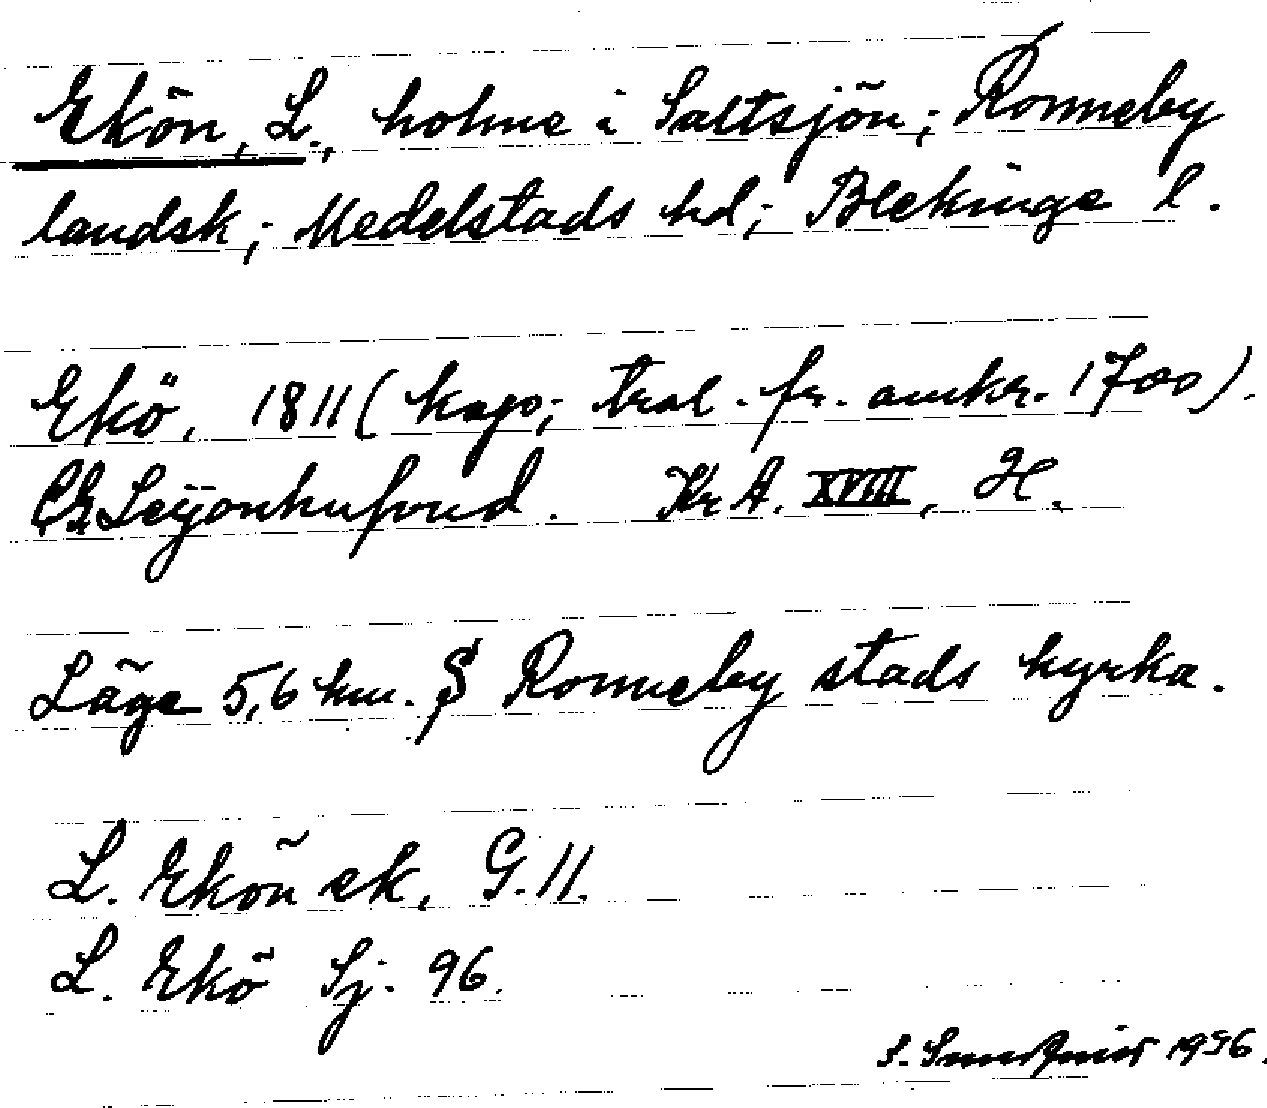 Ekön, L., holme i Saltsjön; Ronneby
landsk; Medelstads hd; Blekinge l.
Ekö, 1811 (kop; tral. fr. omkr. 1700).
Leijonhufvud. Kr A. XVIII, H.
Läge 5,6 km. S Ronneby stads kyrka.
L. Ekön ek, G. 11.
L. Ekö Sj. 96.
S. 1956.